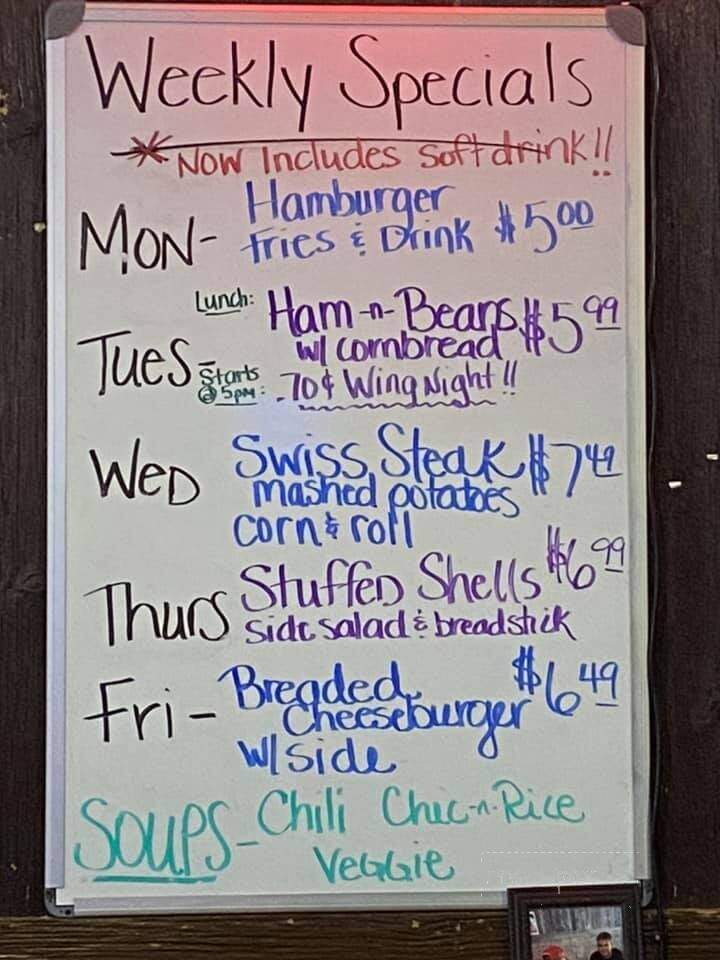 Weekly Specials
* NOW Includes soft drink!!
MON- Hamburger
fries & Drink $5.00
Lunch: Ham-n-Beans $5.99
w/ cornbread
TUES- Starts @ 5PM: .70¢ Wing Night!!
WED Swiss Steak $7.49
mashed potatoes
corn & roll
Thurs Stuffed Shells $6.99
side salad & breadstick
Fri- Breaded $6.49
Cheeseburger
w/side
SOUPS- Chili Chic-n-Rice
Veggie